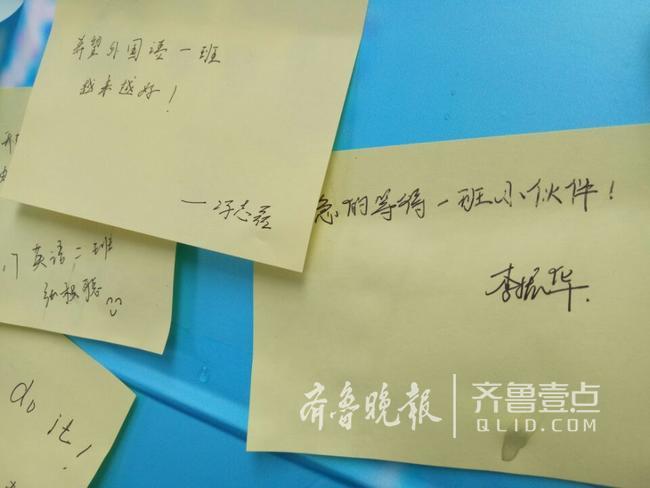 希望外国语一班
越来越好！
急的等待一班小伙伴！
李振华
英语二班
do it!
齐鲁晚报
齐鲁壹点
QLID.COM